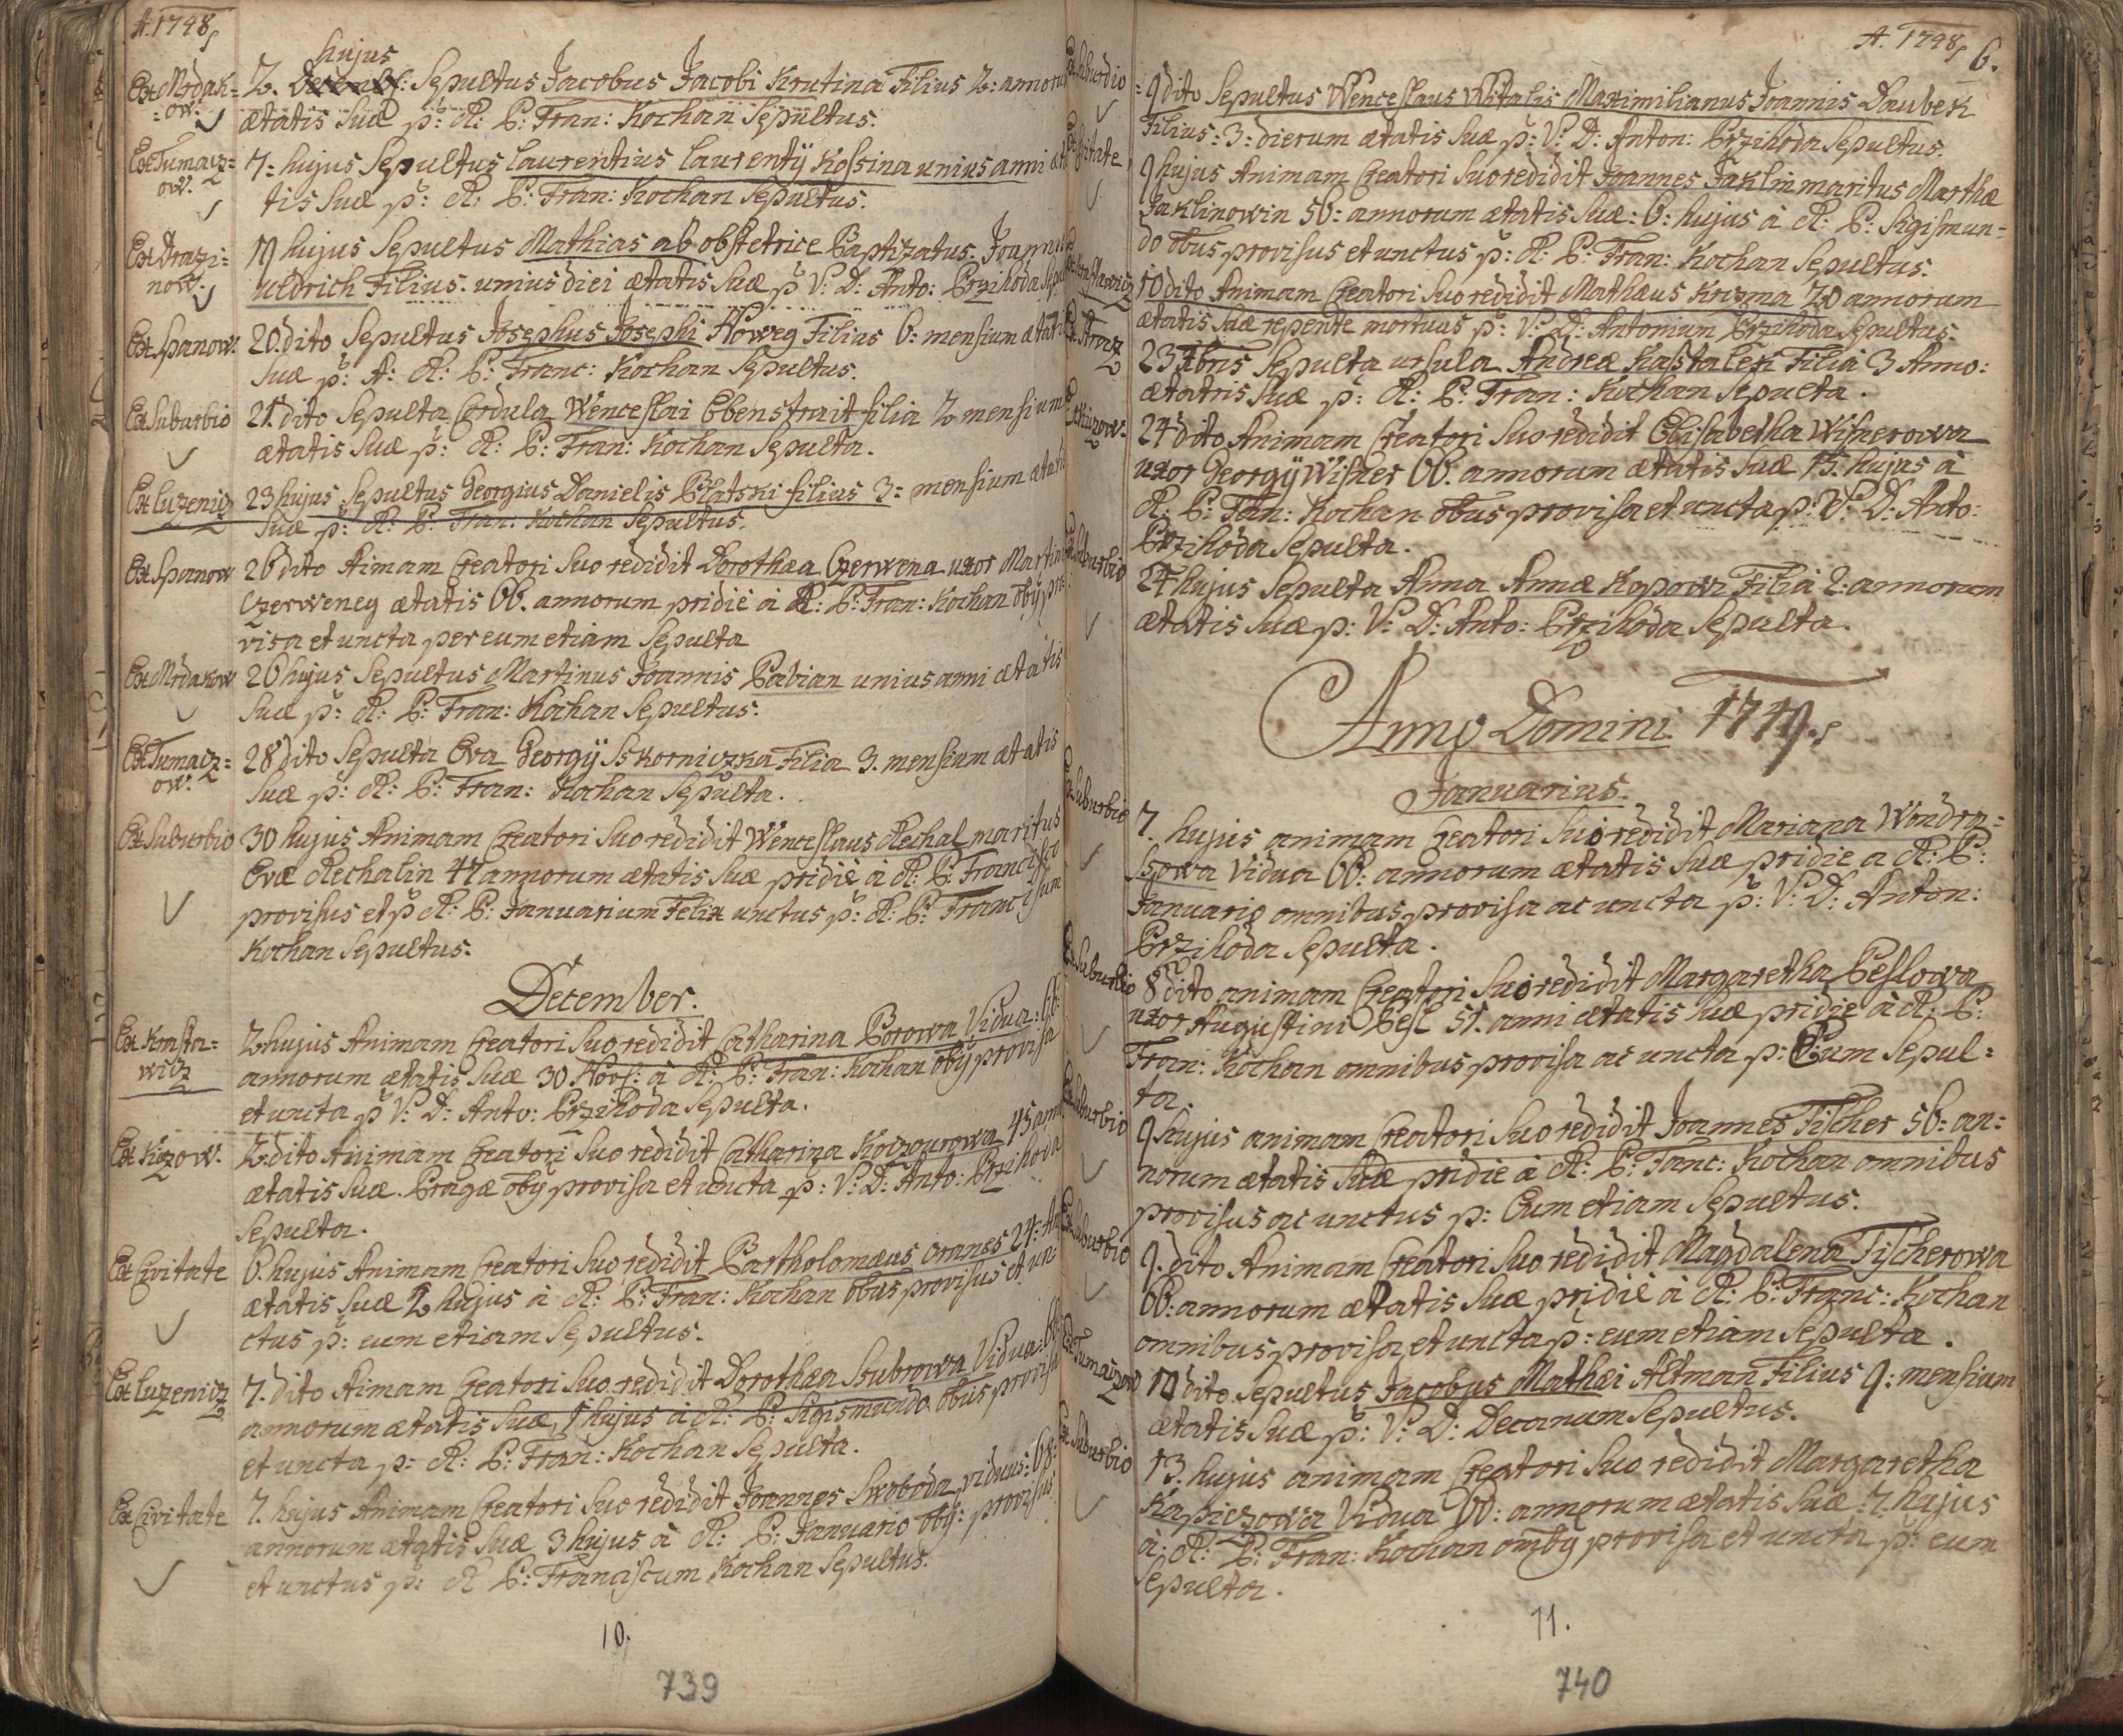 A. 1748
hujus
Ex Mrdak= 2. Decembr: Sepultus Jacobus Jacobi Krutina Filius 2: annorum
=ow. ætatis Suæ p: R: P: Fran: Kochan Sepultus.
Ex Tumacz= 7= hujus Sepultus Laurentius Laurentÿ Kossina unius anni æta
ow. tis Suæ p: R: P: Fran: Kochan Sepultus.
Ex Drazi= 19 hujus Sepultus Mathias ab obstetrice Baptizatus Joannis
now. Uldrich Filius. unius diei ætatis Suæ p V: D: Anto: Przihoda Sepul
Ex Spanow. 20. dito Sepultus Josephus Josephi Howeg Filius 6= mensium ætatis
Suæ p: A: R: P: Franc: Kochan Sepultus.
Ex Suburbio 21. dito Sepulta Cordula Wenceslai Ebenstrait filia 2 mensium
ætatis Suæ p: R: P: Fran: Kochan Sepulta.
Ex Luzenicz 23 hujus Sepultus Georgius Danielis Platski filius 3= mensium ætatis
Suæ p: R: P: Fran: Kochan Sepultus.
Ex Spanow 26 dito Aimam Creatori Suo redidit Dorothæa Czerwena uxor Martini
Czerweney ætatis 66. annorum pridie à R: P: Fran: Kochan obÿ pro
visa et uncta per eum etiam Sepulta
Ex Mrdakow 26 hujus Sepultus Martinus Joannis Pabian unius anni ætatis
Suæ p: R: P: Fran: Kochan Sepultus.
Ex Tumacz= 28 dito Sepulta Eva Georgÿ Skorniczka Filia 3. mensium ætatis
ow. Suæ p: R: P: Fran: Kochan Sepulta.
Ex Suburbio 30 hujus Animam Creatori Suo redidit Wenceslaus Rechal maritus
Evæ Rechalin 47 annorum ætatis Suæ pridie à R: P: Francisco
provisus et p R: P: Januarium Felix unctus p: R: P: Franciscum
Kochan Sepultus.
December.
Ex Krasta= 2. hujus Animam Creatori Suo redidit Catharina Borowa Vidua: 66
wicz annorum ætatis Suæ 30 Novs: à R: P: Fran: Kochan obÿ provisa
et uncta p V: D: Anto: Przihoda Sepulta.
Ex Kizow. 2. dito Animam Creatori Suo redidit Catharina Koczourowa 45 ann
ætatis Suæ. Pragæ obÿ provisa et uncta p: V: D: Anto: Przihoda
Sepulta.
Ex Civitate 6. hujus Animam Creatori Suo redidit Bartholomæus Oranes 24= An
ætatis Suæ 2 hujus à R: P: Fran: Kochan obus provisus et un
ctus p: eum etiam Sepultus.
Ex Luzenicz 7. dito Aimam Creatori Suo redidit Dorothæa Stubrowa Vidua
annorum ætatis Suæ, 1 hujus à R: P: Sigismundo obus provisa
et uncta p: R: P: Fran: Kochan Sepulta.
Ex Civitate 7. hujus Animam Creatori Suo redidit Joannes Swoboda viduus: 68:
annorum ætatis Suæ 3 hujus à R: P: Januario obÿ: provisus
et unctus p: R P: Franciscum Kochan Sepultus.
10.
739
A. 1748 6.
Ex Suburbio 9 dito Sepultus Wenceslaus Witalis Maximilianus Joannis Daubek
Filius: 3= dierum ætatis Suæ p: V: D: Anton: Przihoda Sepultus.
Ex Civitate 9 hujus Animam Creatori Suo redidit Joannes Jaklin maritus Marthæ
Jaklinowin 56: annorum ætatis Suæ: 6: hujus à R: P: Sigismun=
do obus provisus et unctus p: R: P: Fran: Kochan Sepultus.
10 dito Animam Creatori Suo redidit Mathæus Krizma 70 annorum
ætatis Suæ repente mortuus p: V: D: Antonium Przihoda Sepultus.
Ex Straz 23 Xbris Sepulta Ursula Andreæ Kastalek Filia 3 Anno:
ætatris Suæ p: R: P: Fran: Kochan Sepulta.
24 dito Animam Creatori Suo redidit Elisabetha Wisnerowa
uxor Georgÿ Wisner 66. annorum ætatis Suæ 15. hujus à
R: P: Fan: Kochan obus provisa et uncta p: V: D: Anto:
Przihoda Sepulta.
Ex Suburbio 24 hujus Sepulta Anna Annæ Kopowi Filia 2: annorum
ætatis Suæ p: V: D: Anto: Przihoda Sepulta.
Anno Domini 1749.
Januarius.
Ex Suburbio 7. hujus animam Creatori Suo redidit Mariana Wondra=
ssowa Vidua 66: annorum ætatis Suæ pridie a R: P:
Januario omnibus provisa ac uncta p: V: D: Anton:
Przihoda Sepulta.
Ex Suburbio 8 dito animam Creatori Suo redidit Margaretha Peslowa
uxor Augustini Pesl 51. anni ætatis Suæ pridie à R: P:
Fran: Kochan omnibus provisa ac uncta p: Eum Sepul=
ta.
Ex Suburbio 9 hujus animam Creatori Suo redidit Joannes Fischer 56= an=
norum ætatis Suæ pridie à R: P: Franc: Kochan omnibus
provisus ac unctus p: Eum etiam Sepultus.
Ex Suburbio 9. dito Animam Creatori Suo redidit Magdalena Fischerowa
66: annorum ætatis Suæ pridie à R: P: Franc: Kochan
omnibus provisa et uncta p: eum etiam Sepulta.
Ex Tumaczow 10 dito Sepultus Jacobus Mathæi Altman Filius 9: mensium
ætatis Suæ p: V: D: Decanum Sepultus.
Ex Suburbio 13. hujus animam Creatori Suo redidit Margaretha
Kapiczowa Vidua 60: annorum ætatis Suæ: 7. hujus
à: R: P: Fran: Kochan ombÿ provisa et uncta p: eum
Sepulta.
11.
740